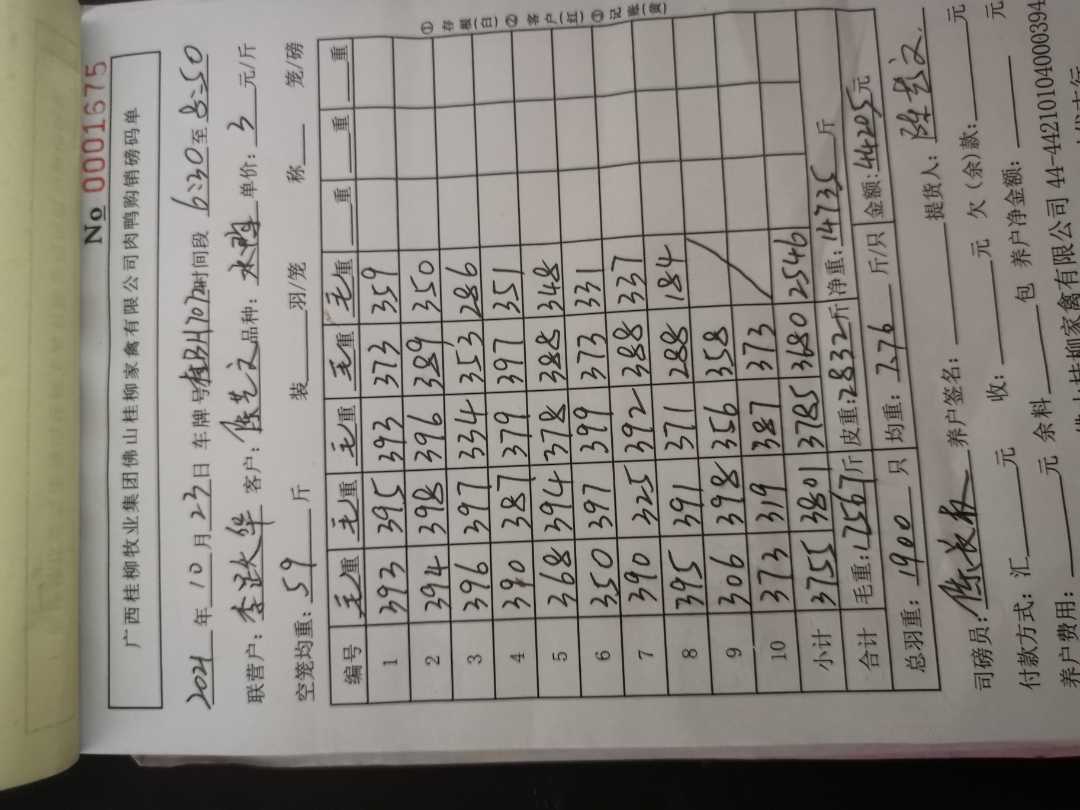 ① 存根(白) ② 客户(红) ③ 记账(黄)
No 0001675
广西桂柳牧业集团佛山桂柳家禽有限公司肉鸭购销磅码单
2021年10月23日 车牌号 时间段 6:30至8:50
联营户: 李跃华 客户: 陈艺文 品种: 水鸭 单价: 3 元/斤
空笼均重: 59 斤 装 羽/笼 称 笼/磅
编号 毛重 毛重 毛重 毛重 毛重 重 重 重
1 393 395 393 373 359
2 394 398 396 389 350
3 396 397 334 353 286
4 390 387 379 397 351
5 368 394 378 388 348
6 350 397 399 373 331
7 390 325 392 388 337
8 395 391 371 288 184
9 306 398 356 358
10 373 319 387 373
小计 3755 3801 3785 3680 2546
合计 毛重: 17567斤 皮重: 2832斤 净重: 14735 斤
总羽重: 1900 只 均重: 7.76 斤/只 金额: 44205元
司磅员: 陈长求 养户签名: 提货人: 陈艺文.
付款方式: 汇 元 收: 元 欠(余)款: 元
养户费用: 元 余料 包 养户净金额: 元
佛山桂柳家禽有限公司 44-44210104000394